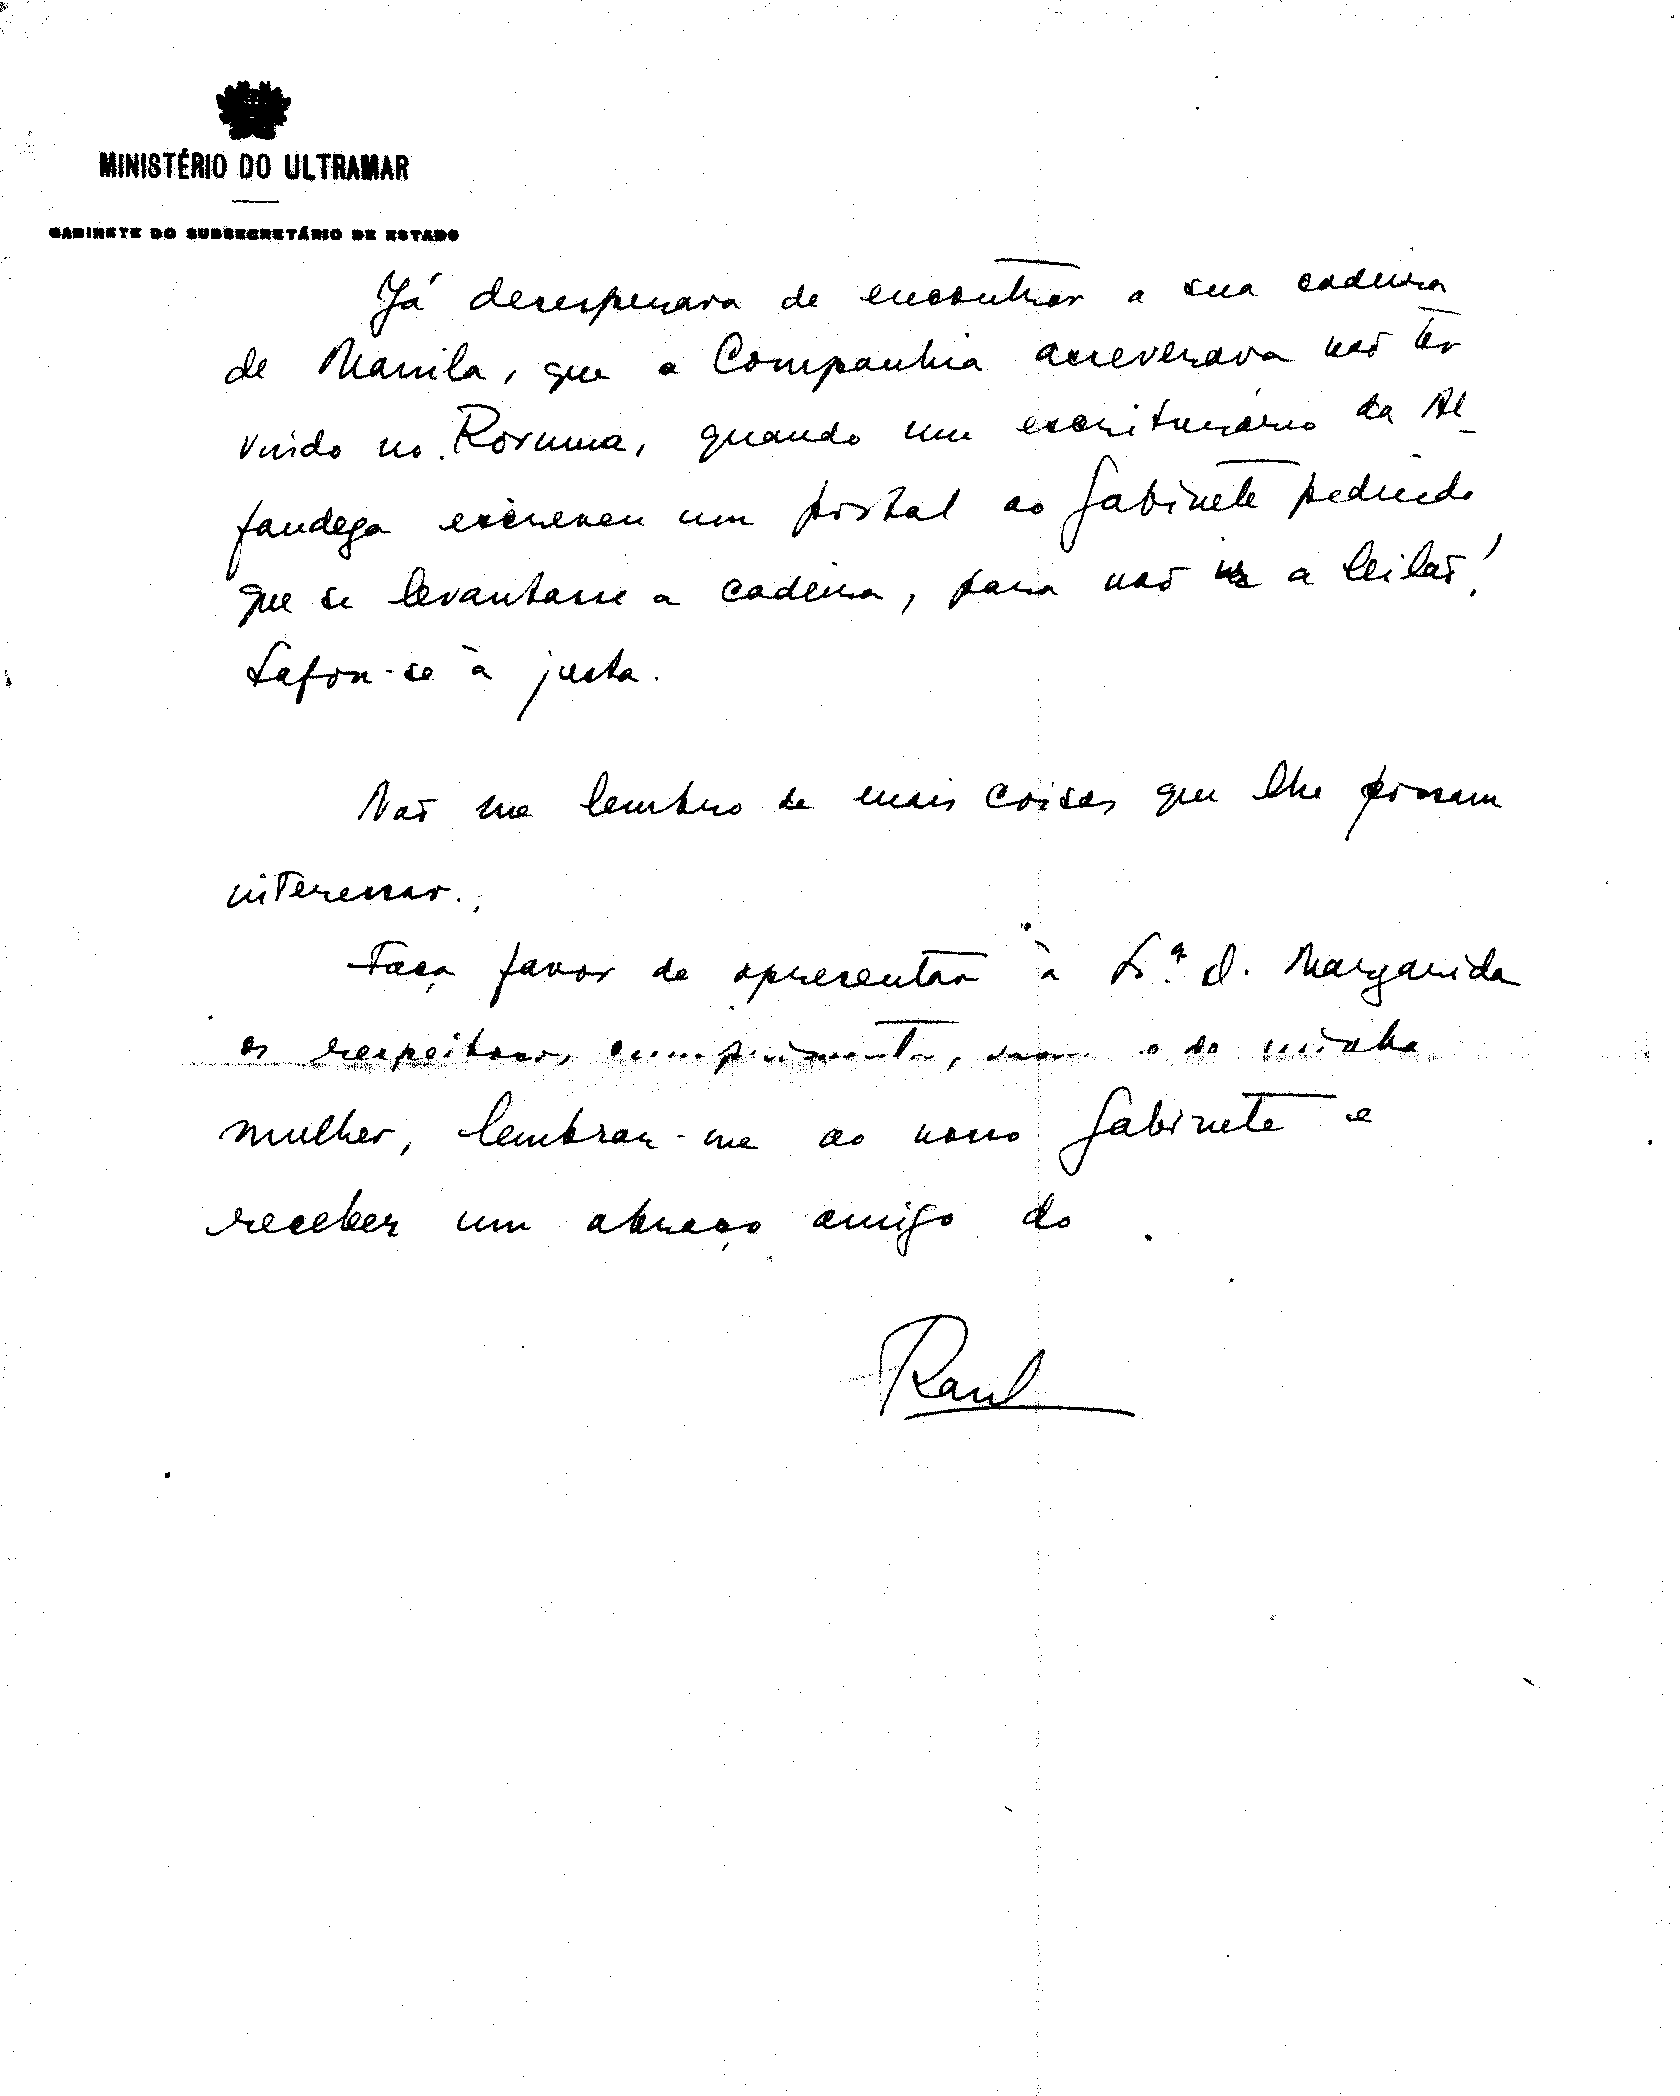 MINISTÉRIO DO ULTRAMAR
GABINETE DO SUBSECRETÁRIO DE ESTADO
Já desesperava de encontrar a sua cadeira
de Manila, que a Companhia asseverava não ter
vindo no Rovuma, quando um escriturário da Al-
fandega escreveu um postal ao Gabinete pedindo
que se levantasse a cadeira, para não ir a leilão!
Safou-se à justa.
Não me lembro de mais coisas que lhe possam
interessar.
Faça favor de apresentar à Sr.ª D. Margarida
os respeitosos cumprimentos, meus e de minha
mulher, lembrar-me ao nosso Gabinete e
receber um abraço amigo do
Raul